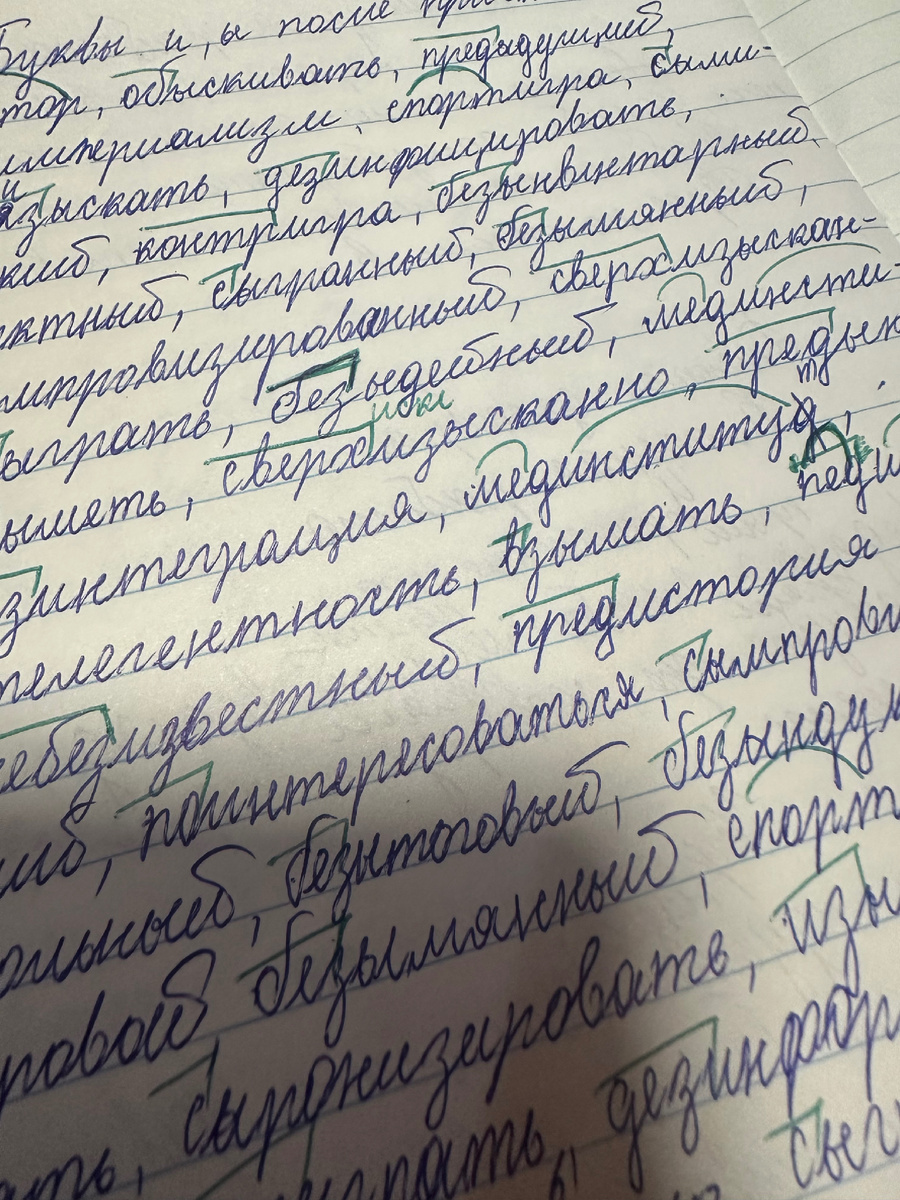 Буквы и, ы после
тор, обыскивать, предыдущий,
империализм, спортигра, сыми-
зыскать, дезинфицировать,
кий, контригра, безынвинтарный,
ектный, сыгранный, безымянный,
мпровизированный, сверхизыскан-
ыграть, безыдейный, мединсти-
ыметь, сверхизысканно, предын
зинтеграция, мединститут,
телегентность, взымать, педи
небезизвестный, предистория
ий, поинтересоваться, сымпрови
альный, безытоговый, безындук
ровой, безымянный, спорт
ать, сыронизировать, изы
играть, дезинфор
сыг